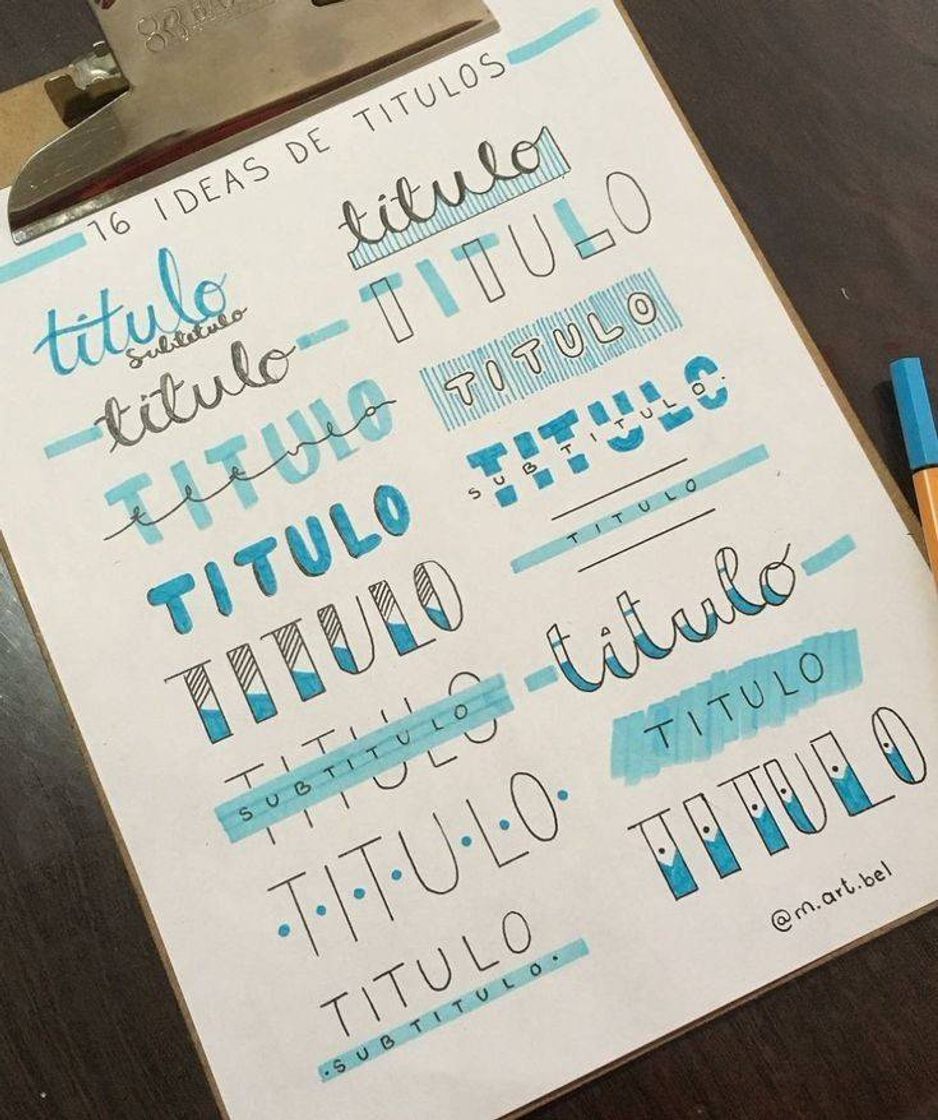 16 IDEAS DE TITULOS
titulo
Subtitulo
titulo
TITULO
titulo
TITULO
TITULO
SUBTITULO
TITULO
SUBTITULO
TITULO
SUBTITULO
titulo
TITULO
TITULO
SUBTITULO.
TITULO
titulo
TITULO
TITULO
TITULO
.SUBTITULO.
@m.art.bel